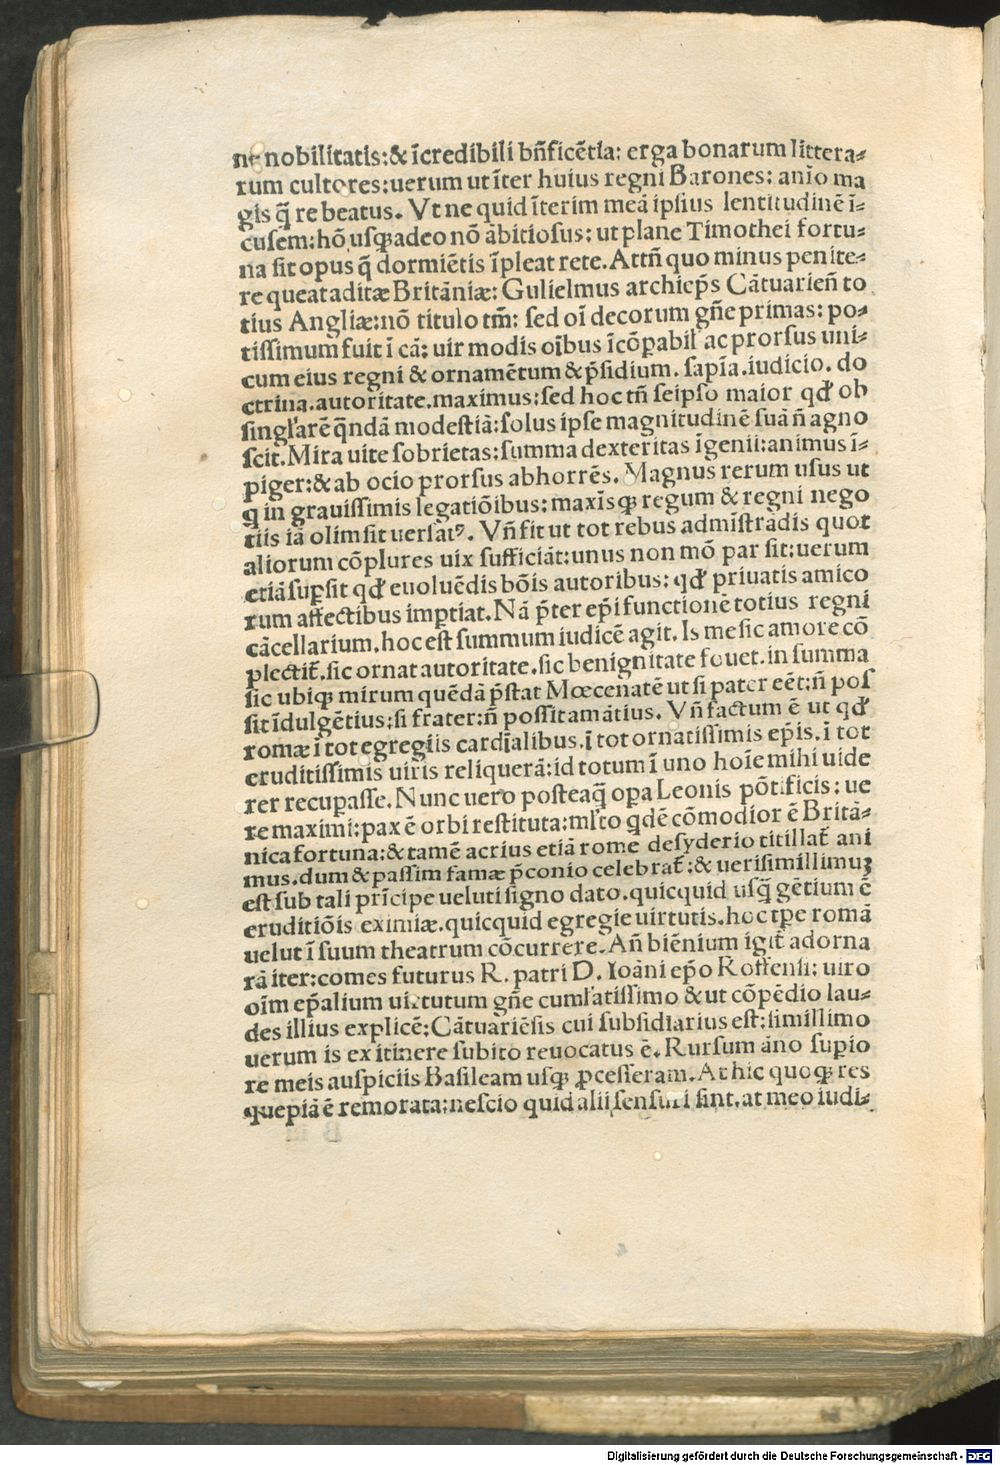 ne nobilitatis:& īcredibili bñficētia: erga bonarum littera⸗
rum cultores:uerum ut īter huius regni Barones: anīo ma
gis q̄ re beatus. Vt ne quid īterim meā ipsius lentitudinē ī⸗
cusem:hō usqꝫ adeo nō ābitiosus: ut plane Timothei fortu⸗
na sit opus q̄ dormiētis īpleat rete. Attñ quo minus penite⸗
re queat aditæ Britāniæ: Gulielmus archiep̄s Cātuarieñ to
tius Angliæ:nō titulo tm̄: sed oī decorum gñe primas: po⸗
tissimum fuit ī cā: uir modis oībus īcōꝑabil̛ ac prorsus uni⸗
cum eius regni & ornamētum & p̄sidium. sapīa.iudicio. do
ctrina.autoritate.maximus:sed hoc tñ seipso maior qđ ob
singl̛arē q̄ndā modestiā:solus ipse magnitudinē suā ñ agno
scit.Mira uite sobrietas:summa dexteritas īgenii:animus ī⸗
piger:& ab ocio prorsus abhorrēs. Magnus rerum usus ut
q in grauissimis legatiōibus: maxīsqꝫ regum & regni nego
tiis iā olim sit uersatꝰ. Vñ fit ut tot rebus admīstrādis quot
aliorum cōplures uix sufficiāt:unus non mō par sit:uerum
etiā suꝑsit qđ euoluēdis bōis autoribus: qđ priuatis amico
rum affectibus imꝑtiat. Nā p̄ter ep̄i functionē totius regni
cācellarium.hoc est summum iudicē agit. Is me sic amore cō
plectit̄.sic ornat autoritate.sic benignitate fouet.in summa
sic ubiqꝫ mirum quēdā p̄stat Mœcenatē ut si pater eēt:ñ pos
sit īdulgētius:si frater:ñ possit amātius. Vñ factum ē ut qđ
romæ ī tot egregiis cardīalibus.ī tot ornatissimis ep̄is.ī tot
eruditissimis uiris reliquerā:id totum ī uno hoīe mihi uide
rer recuꝑasse.Nunc uero posteaq̄ oꝑa Leonis pōtificis: ue
re maximi:pax ē orbi restituta:ml̛to qdē cōmodior ē Britā⸗
nica fortuna:& tamē acrius etiā rome desyderio titillat̄ ani
mus.dum & passim famæ p̄conio celebrat̄:& uerisimillimuꝫ
est sub tali prīcipe ueluti signo dato.quicquid usq̄ gētium ē
eruditiōis eximiæ.quicquid egregie uirtutis.hoc tꝑe romā
uelut ī suum theatrum cōcurrere.Añ biēnium igit̄ adorna
rā iter:comes futurus R. patri D. Ioāni ep̄o Roffensi: uiro
oīm ep̄alium uirtutum gñe cuml̛atissimo & ut cōpēdio lau⸗
des illius explicē:Cātuariēsis cui subsidiarius est:simillimo
uerum is ex itinere subito reuocatus ē.Rursum āno suꝑio
re meis auspiciis Basileam usqꝫ ꝓcesseram.At hic quoqꝫ res
quepiā ē remorata:nescio quid alii sensuri sint.at meo iudi⸗
Digitalisierung gefördert durch die Deutsche Forschungsgemeinschaft - DFG